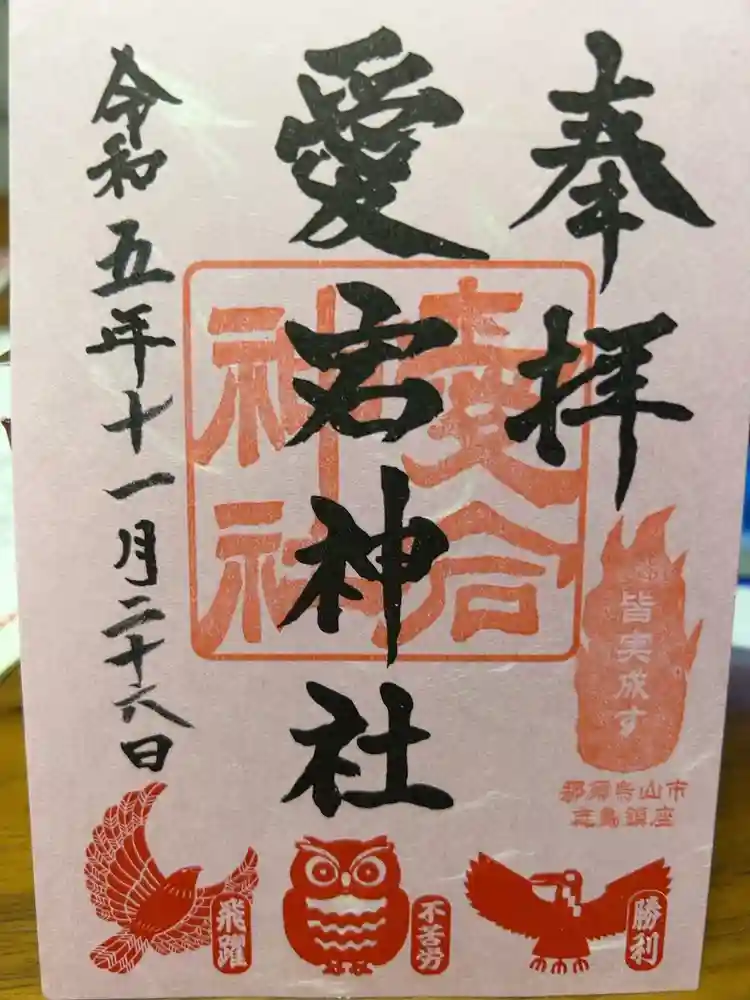 奉拝
愛宕神社
令和五年十一月二十六日
愛宕
神社
皆実成す
那須烏山市
志鳥鎮座
勝利
不苦労
飛躍